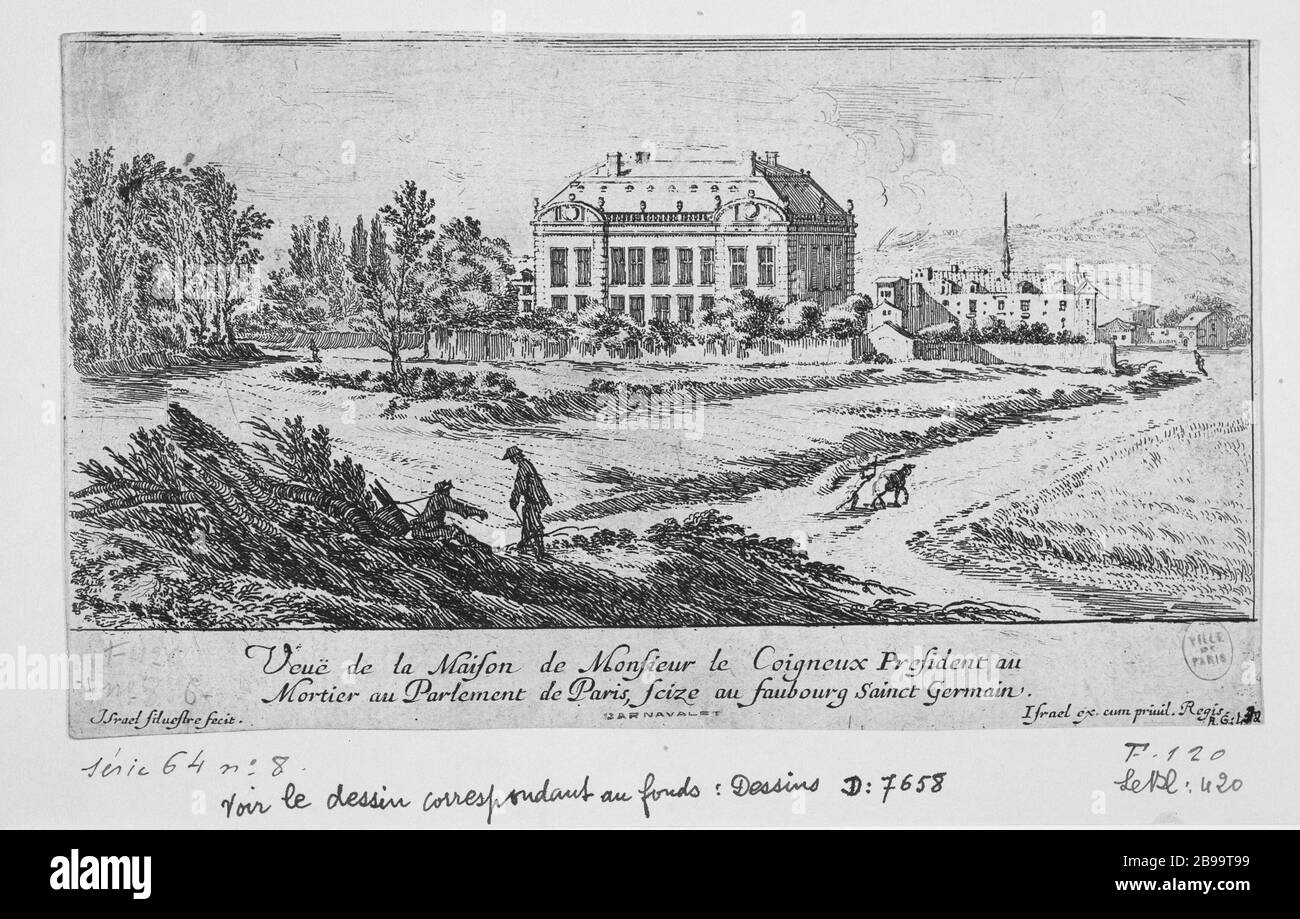 Veuë de la Maiſon de Monſieur le Coigneux Preſident au
Mortier au Parlement de Paris, ſcize au faubourg Sainct Germain.
Iſrael ſilueſtre fecit.
CARNAVALET
Iſrael ex. cum priuil. Regis
VILLE
DE
PARIS
série 64 n° 8.
F. 120
Voir le dessin correspondant au fonds : Dessins D: 7658
420
alamy
Image ID: 2B99T99
www.alamy.com